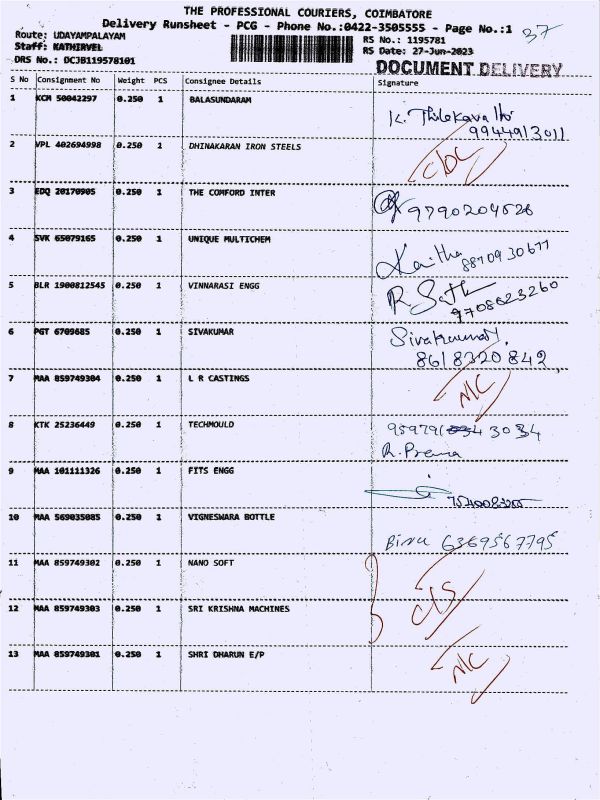 THE PROFESSIONAL COURIERS, COIMBATORE
Delivery Runsheet - PCG - Phone No.:0422-3505555 - Page No.:1
37
Route: UDAYAMPALAYAM
RS No.: 1195781
Staff: KATHIRVEL
RS Date: 27-Jun-2023
DRS No.: DCJB119578101
DOCUMENT DELIVERY
S No Consignment No Weight PCS Consignee Details Signature
1 KCM 50042297 0.250 1 BALASUNDARAM
K. Thilekavathi
9944913011
2 VPL 402694998 0.250 1 DHINAKARAN IRON STEELS
3 EDQ 20170905 0.250 1 THE COMFORD INTER
9790204526
4 SVK 65079165 0.250 1 UNIQUE MULTICHEM
Kavitha
8870930677
5 BLR 1900812545 0.250 1 VINNARASI ENGG
9708623260
6 PGT 6709685 0.250 1 SIVAKUMAR
8618320842
7 MAA 859749304 0.250 1 L R CASTINGS
N/C
8 KTK 25236449 0.250 1 TECHMOULD
R. Prema
9 MAA 101111326 0.250 1 FITS ENGG
10 MAA 569035085 0.250 1 VIGNESWARA BOTTLE
6369567795
11 MAA 859749302 0.250 1 NANO SOFT
12 MAA 859749303 0.250 1 SRI KRISHNA MACHINES
13 MAA 859749301 0.250 1 SHRI DHARUN E/P
N/C